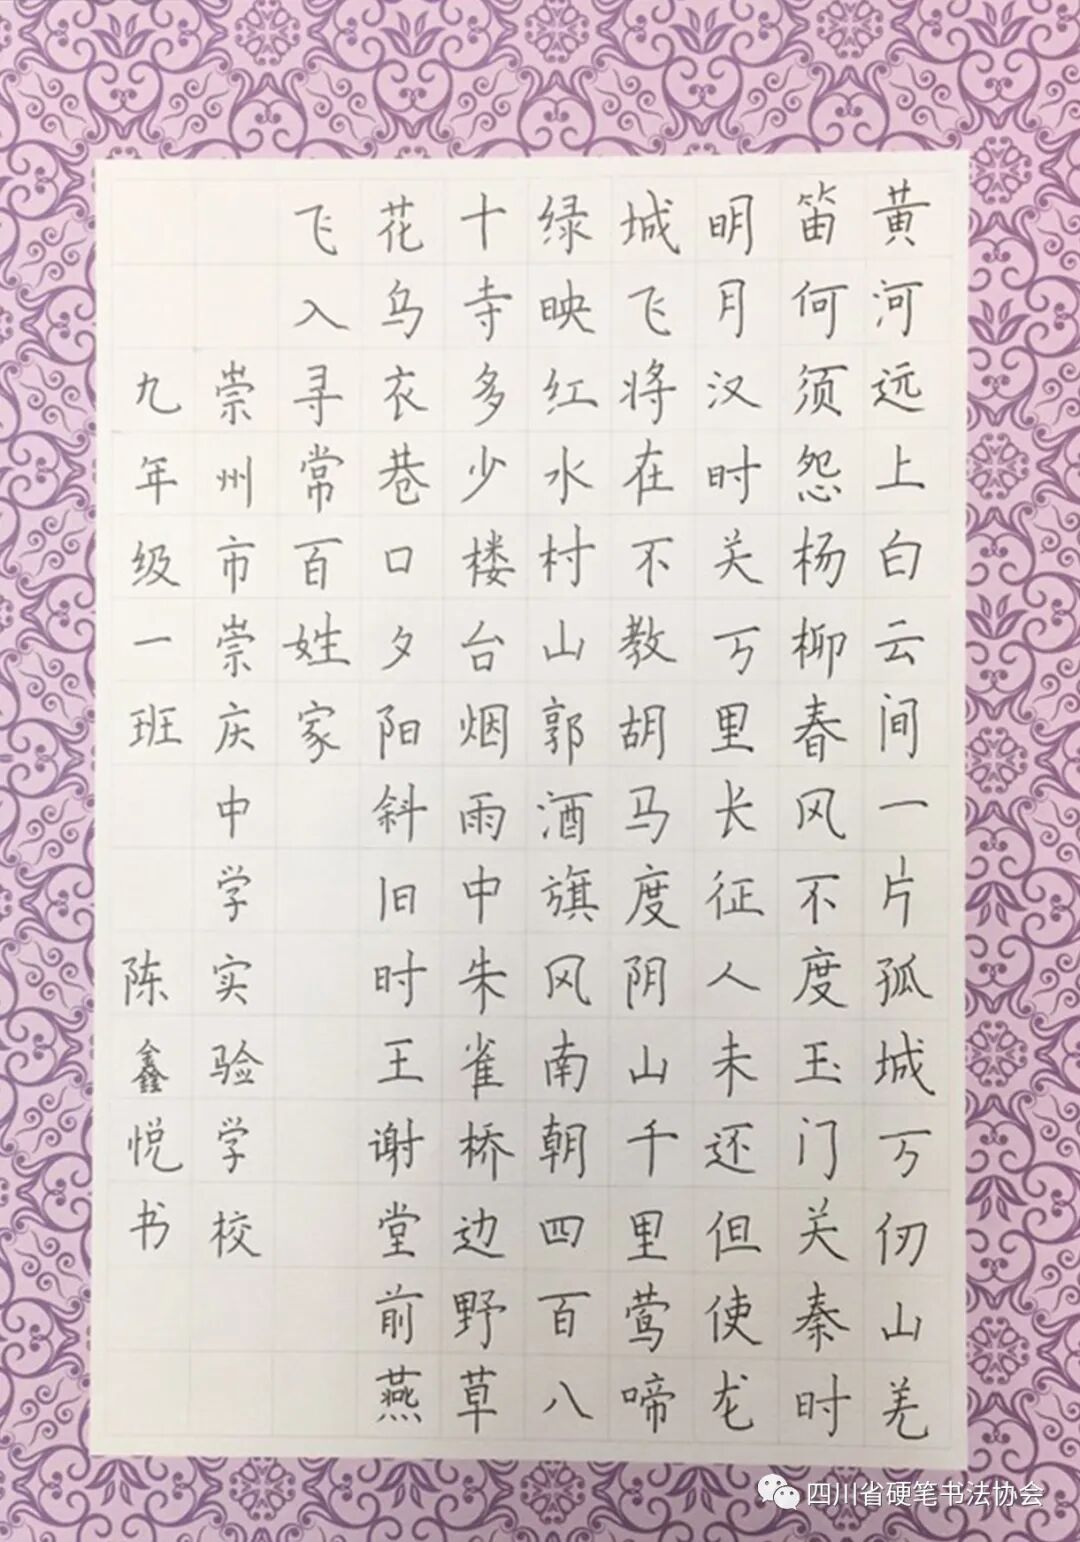 黄河远上白云间一片孤城万仞山羌
笛何须怨杨柳春风不度玉门关秦时
明月汉时关万里长征人未还但使龙
城飞将在不教胡马度阴山千里莺啼
绿映红水村山郭酒旗风南朝四百八
十寺多少楼台烟雨中朱雀桥边野草
花乌衣巷口夕阳斜旧时王谢堂前燕
飞入寻常百姓家
崇州市崇庆中学实验学校
九年级一班 陈鑫悦书
四川省硬笔书法协会